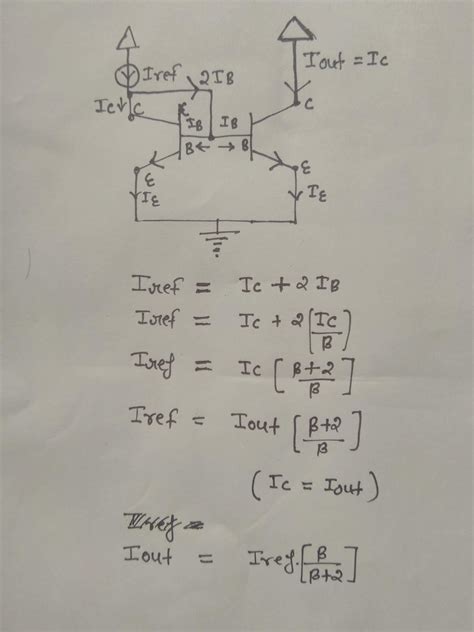 Iref 2IB Iout = Ic
Ic C C
ε
IB IB
B B
ε ε
IE IE
Iref = Ic + 2 IB
Iref = Ic + 2[Ic/β]
Iref = Ic [β+2/β]
Iref = Iout [β+2/β]
(Ic = Iout)
Iref =
Iout = Iref.[β/β+2]